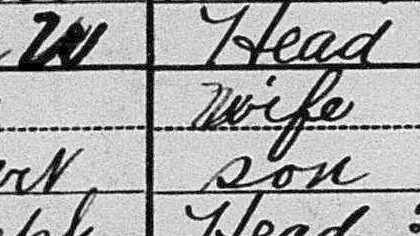 W Head
Wife
son
Head